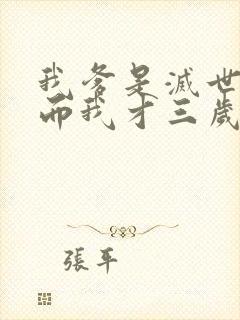 我爹是滅世
而我才三歲
張平